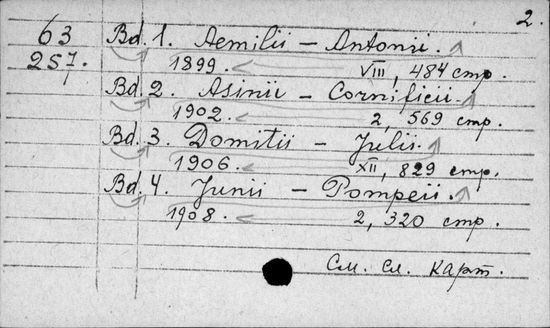 2.
63 Bd. 1. Aemilii – Antonii.
257. 1899. VIII, 484 стр.
Bd. 2. Asinii – Cornificii.
1902. 2, 569 стр.
Bd. 3. Domitii – Julii.
1906. XII, 829 стр.
Bd. 4. Junii – Pompeii.
1908. 2, 320 стр.
См. сл. карт.